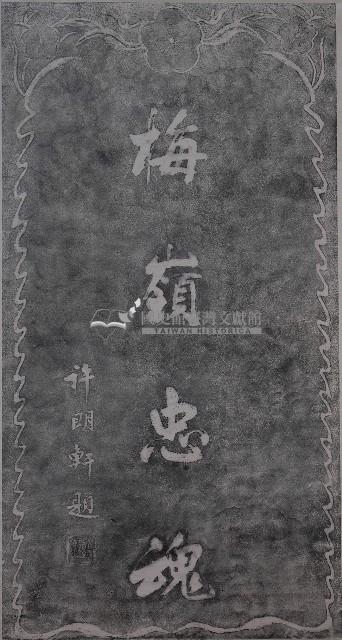 梅嶺忠魂
許明軒題
國史館臺灣文獻館
TAIWAN HISTORICA